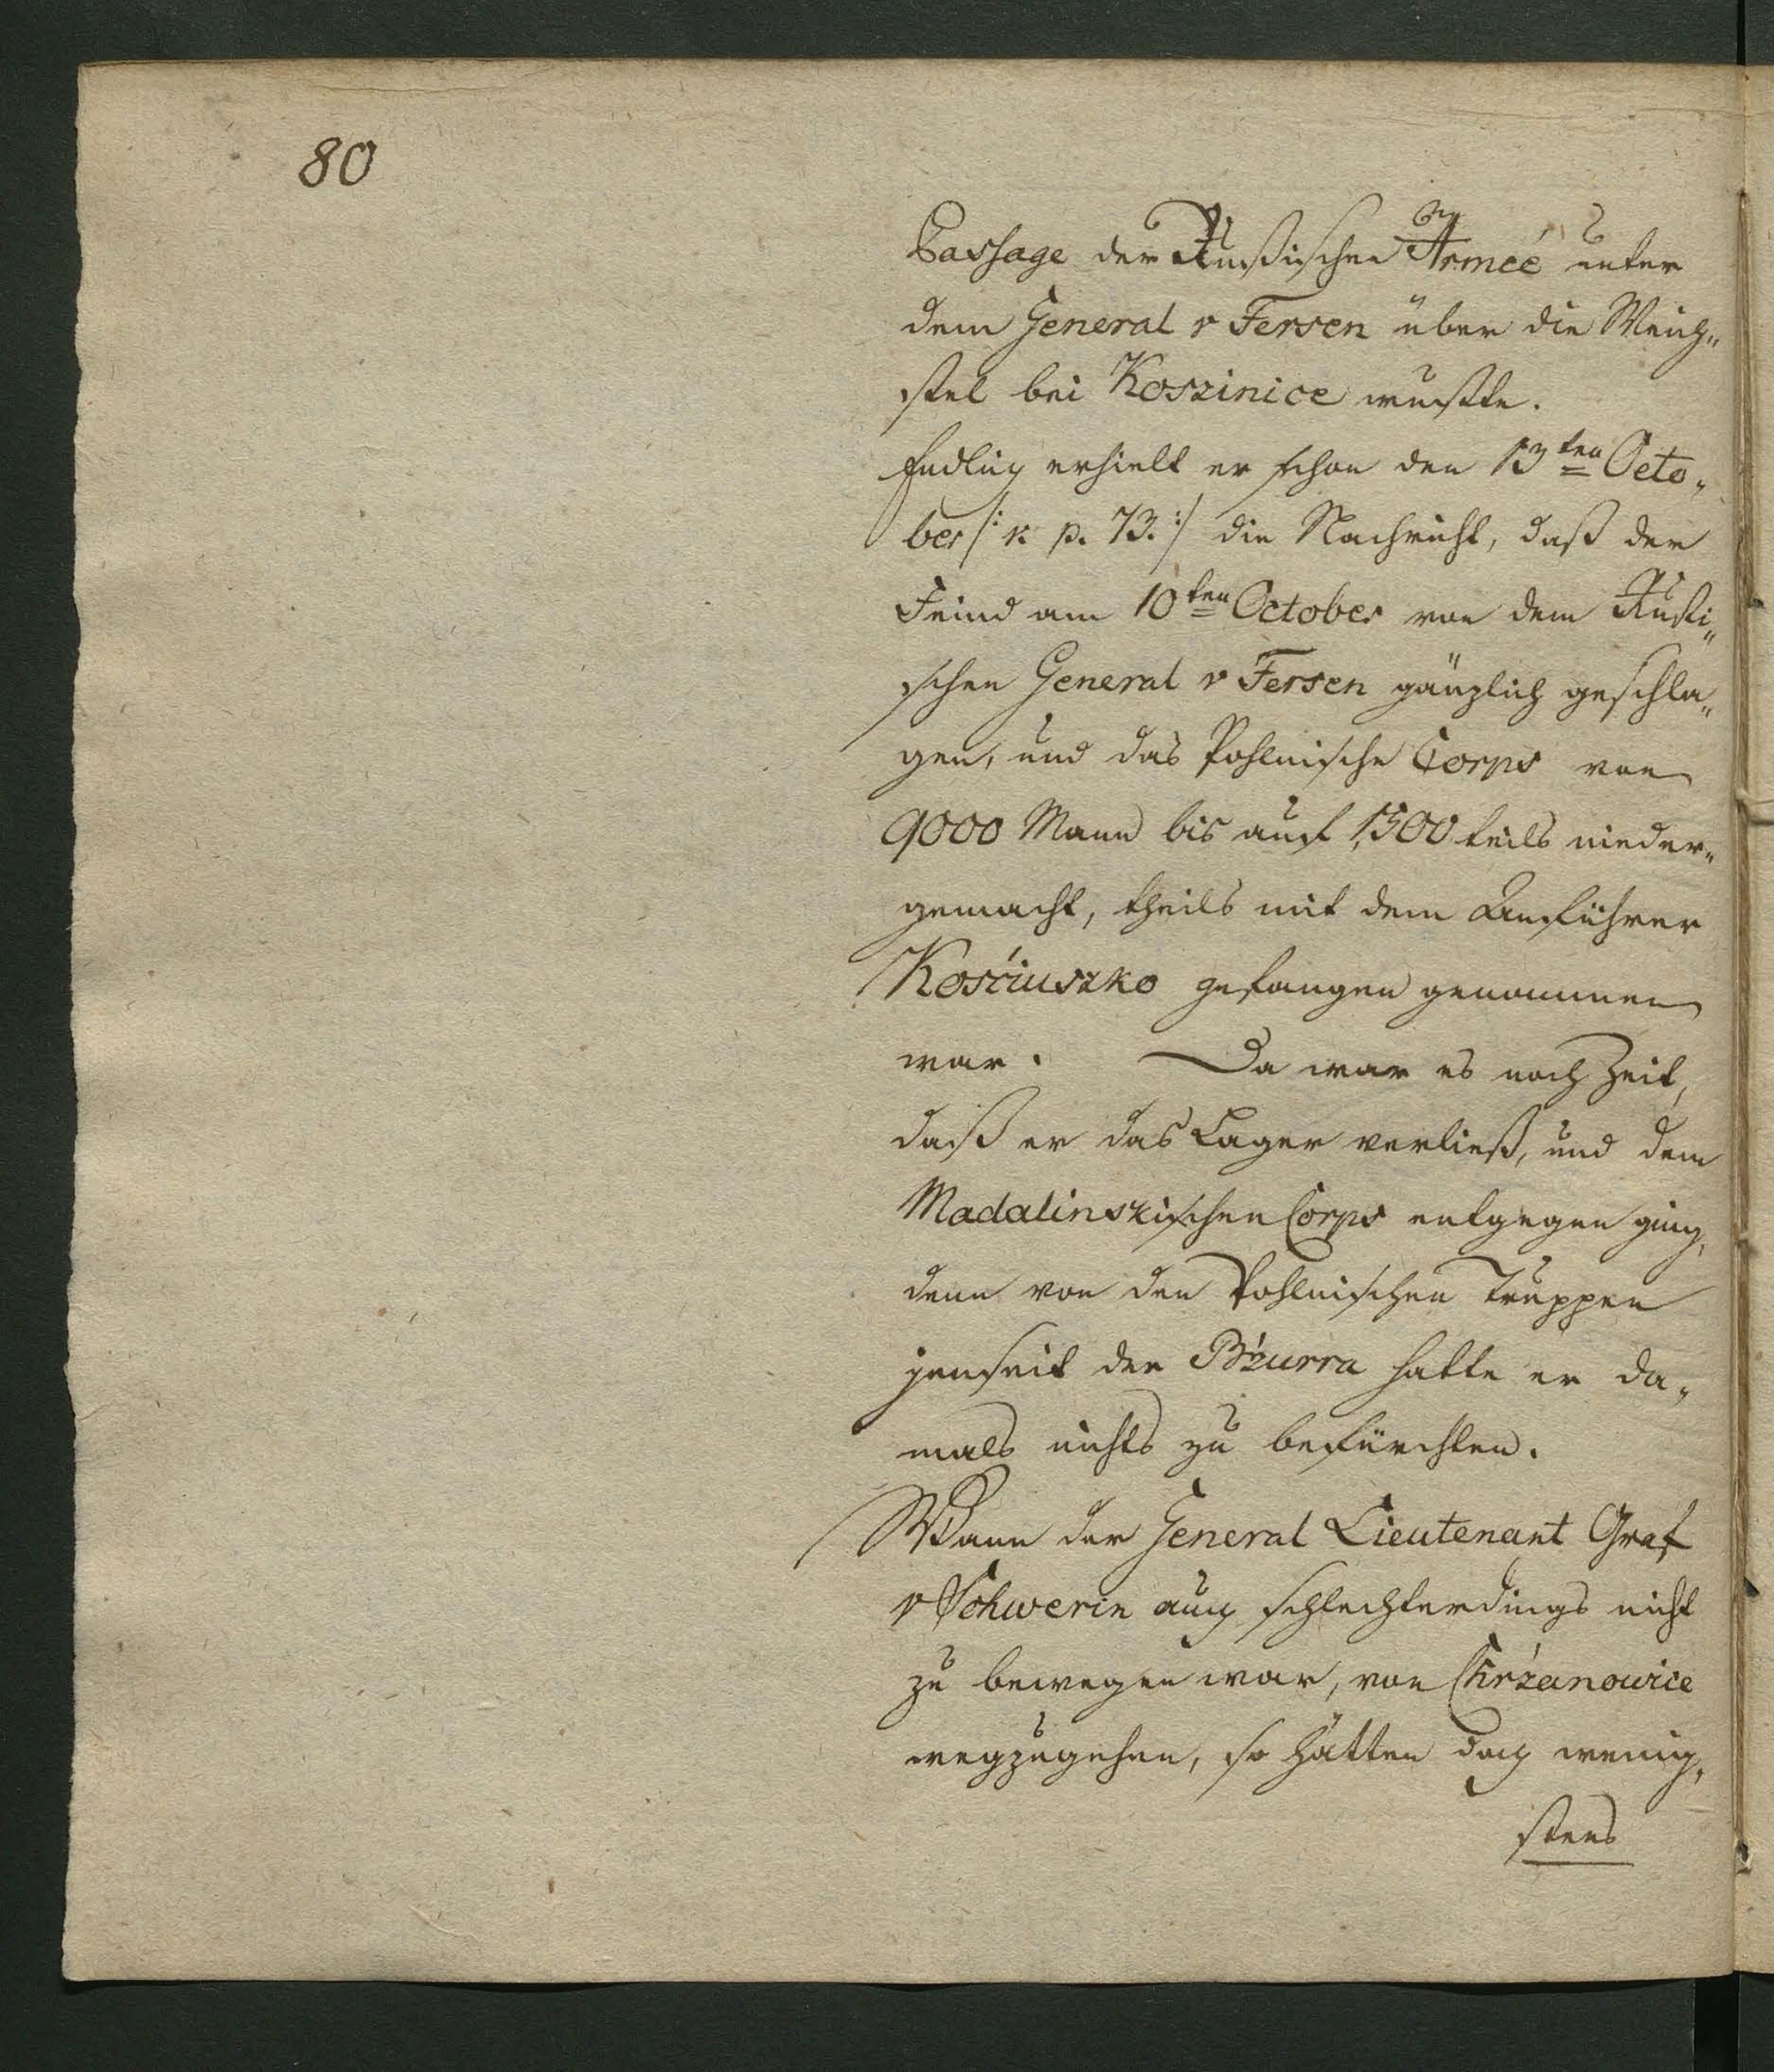 80
Passage der Rußischen Armée unter
dem General v Fersen über die Weich„
sel bei Koszinice wußte.
Endlich erhielt er schon den 13ten Octo„
ber /: v. p. 73. :/ die Nachricht, daß der
Feind am 10ten October von dem Rußi„
schen General v Fersen gänzlich geschla„
gen, und das Pohlnische Corps von
9000 Mann bis auf 1,500 teils nieder„
gemacht, theils mit dem Anführer
Kościuszko gefangen genommen
war. Da war es noch Zeit,
daß er das Lager verließ, und dem
Madalinskischen Corps entgegen ging,
denn von den Pohlnischen Truppen
jenseit der Bźurra hatte er da„
mals nichts zu befürchten.
Wann der General Lieutenant Graf
v Schwerin auch schlechterdings nicht
zu bewegen war, von Chrźanowice
wegzugehen, so hätten doch wenig„
stens